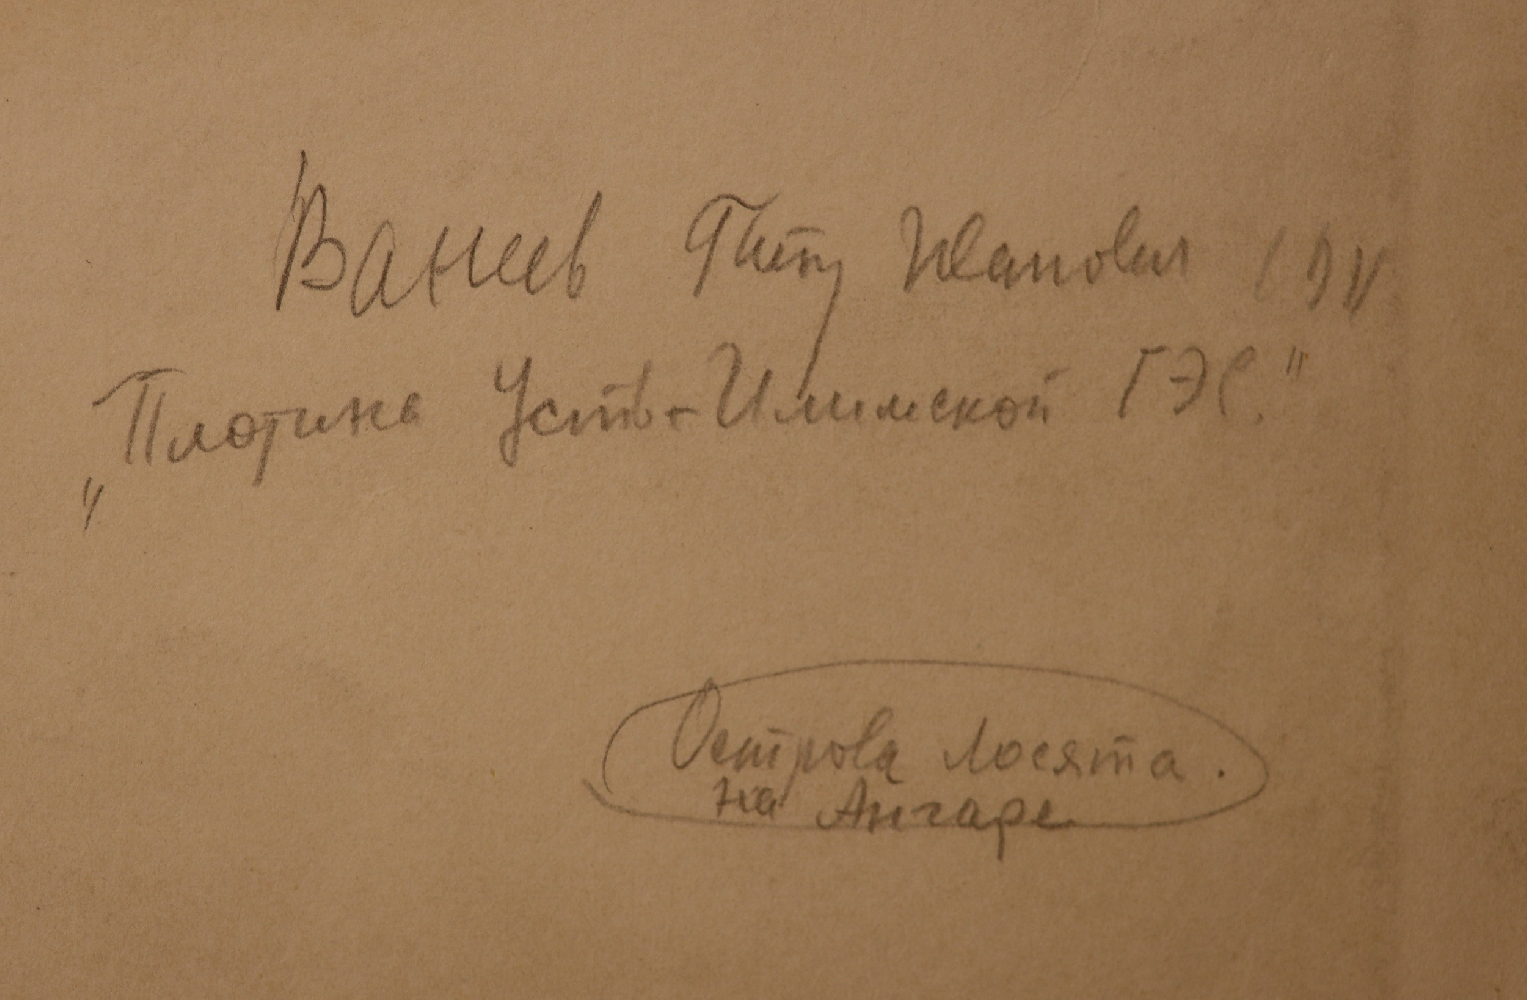 Ванеев Петр Иванович
„Плотина Усть-Илимской ГЭС."
Острова Лосята.
на Ангаре